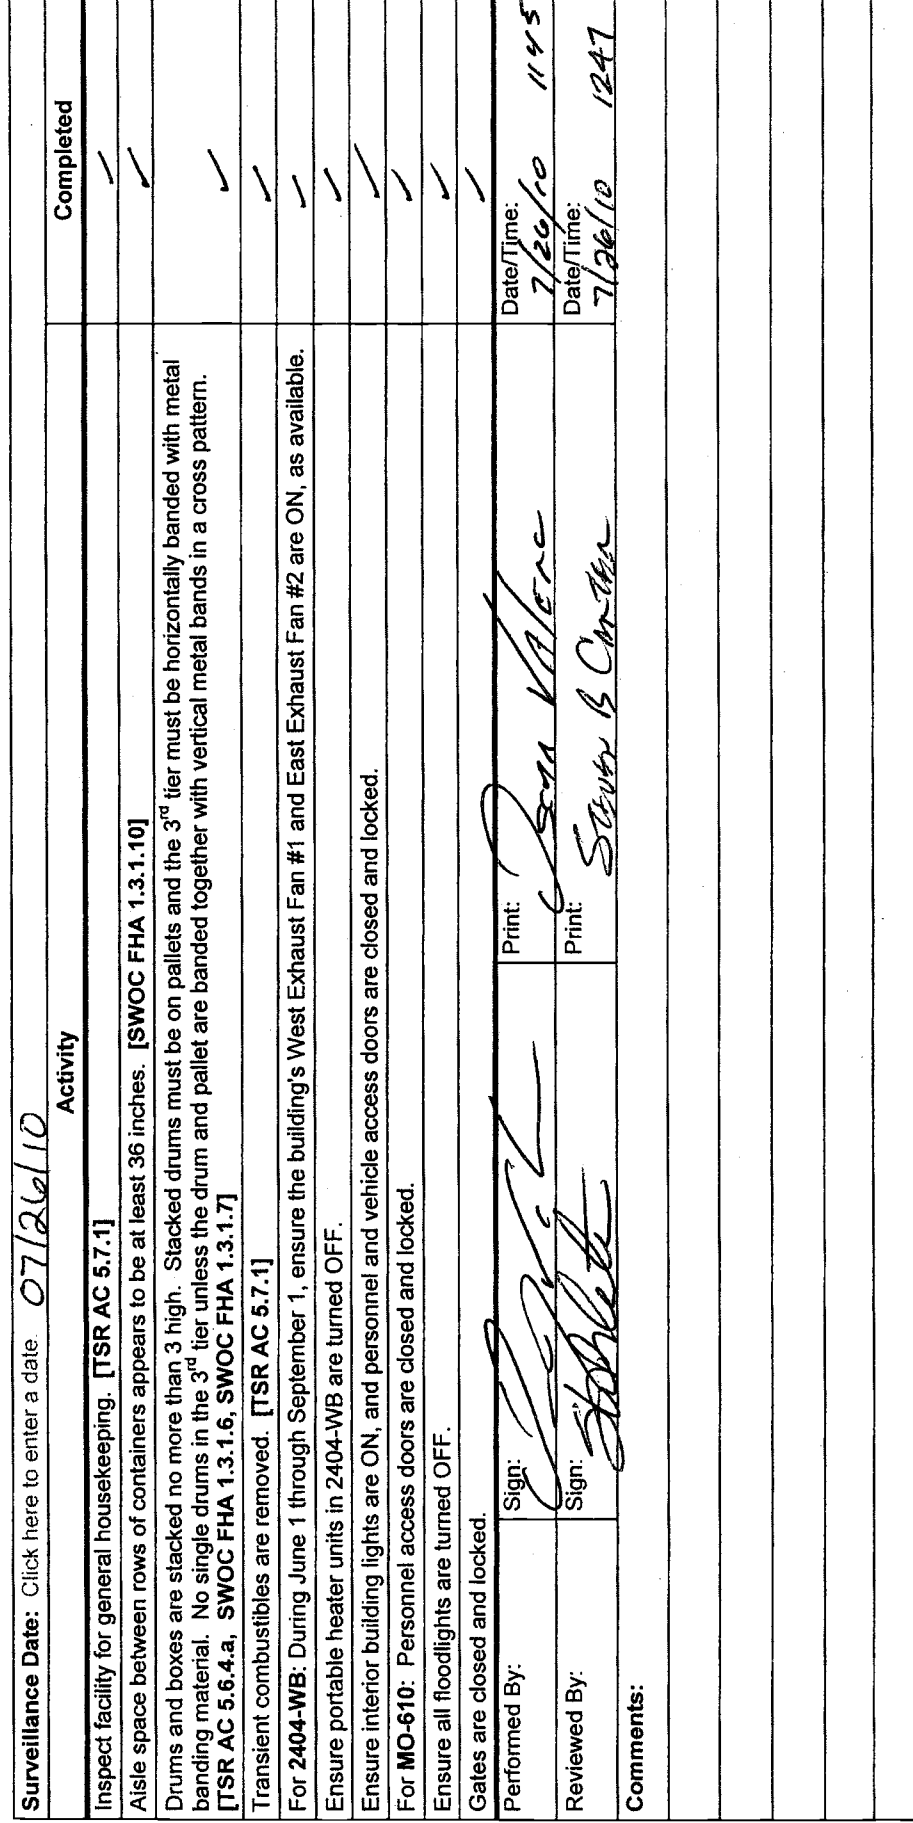 Surveillance Date: Click here to enter a date. 07/26/10
Activity Completed
Inspect facility for general housekeeping. [TSR AC 5.7.1] ✓
Aisle space between rows of containers appears to be at least 36 inches. [SWOC FHA 1.3.1.10] ✓
Drums and boxes are stacked no more than 3 high. Stacked drums must be on pallets and the 3rd tier must be horizontally banded with metal
banding material. No single drums in the 3rd tier unless the drum and pallet are banded together with vertical metal bands in a cross pattern.
[TSR AC 5.6.4.a, SWOC FHA 1.3.1.6, SWOC FHA 1.3.1.7] ✓
Transient combustibles are removed. [TSR AC 5.7.1] ✓
For 2404-WB: During June 1 through September 1, ensure the building's West Exhaust Fan #1 and East Exhaust Fan #2 are ON, as available. ✓
Ensure portable heater units in 2404-WB are turned OFF. ✓
Ensure interior building lights are ON, and personnel and vehicle access doors are closed and locked. ✓
For MO-610: Personnel access doors are closed and locked. ✓
Ensure all floodlights are turned OFF. ✓
Gates are closed and locked. ✓
Performed By: Sign: Print: Date/Time:
7/26/10 1145
Reviewed By: Sign: Print: Date/Time:
B 7/26/10 1247
Comments: